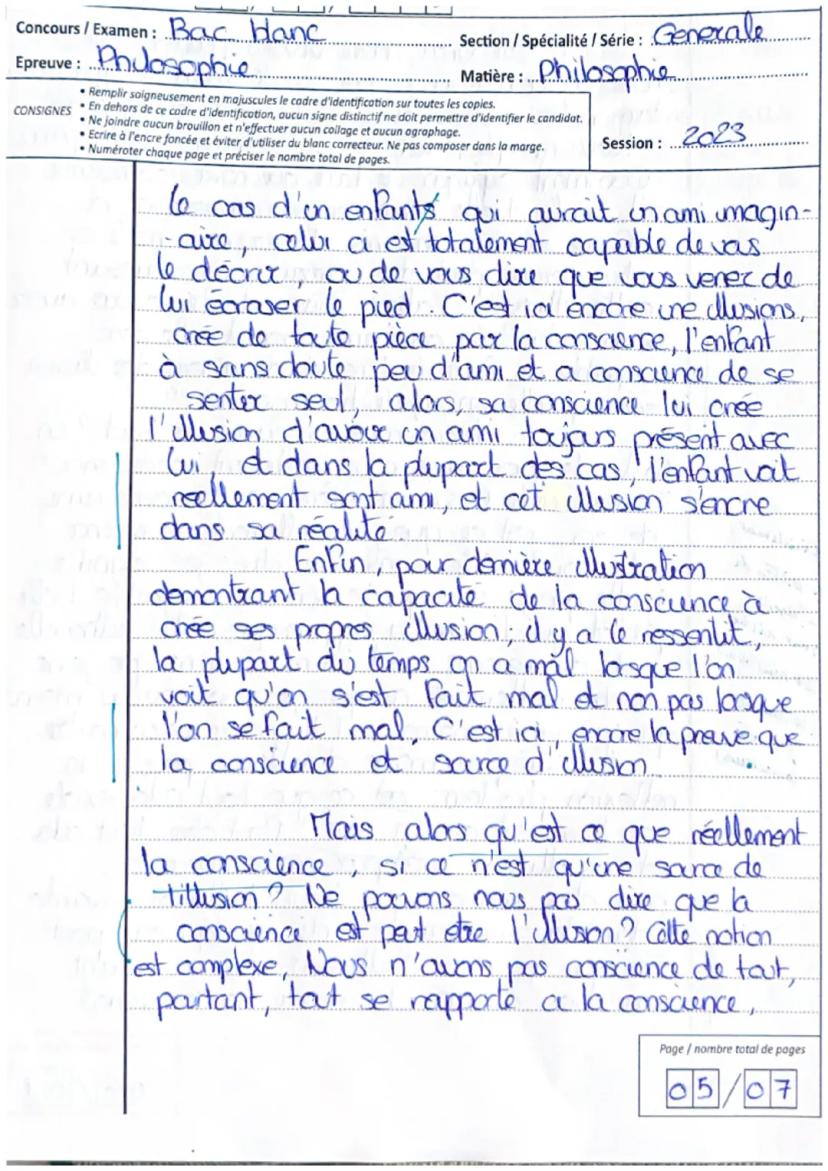 Concours / Examen : Bac blanc
Section / Spécialité / Série : Generale
Epreuve : Philosophie
Matière : Philosophie
CONSIGNES
• Remplir soigneusement en majuscules le cadre d'identification sur toutes les copies.
• En dehors de ce cadre d'identification, aucun signe distinctif ne doit permettre d'identifier le candidat.
• Ne joindre aucun brouillon et n'effectuer aucun collage et aucun agraphage.
• Ecrire à l'encre foncée et éviter d'utiliser du blanc correcteur. Ne pas composer dans la marge.
• Numéroter chaque page et préciser le nombre total de pages.
Session : 2023
le cas d'un enfants qui aurait un ami imagin-
aire, celui ci est totalement capable de vous
le décrir, ou de vous dire que vous venez de
lui écraser le pied. C'est ici encore une illusions,
créé de toute pièce par la conscience, l'enfant
à sans doute peu d'ami et a conscience de se
senter seul, alors sa conscience lui crée
l'illusion d'avoir un ami toujours présent avec
lui et dans la plupart des cas, l'enfant voit
réellement son ami, et cet illusion s'encre
dans sa réalité.
Enfin, pour dernière illustration
demontrant la capacité de la conscience à
crée ses propres illusion, il y a le ressentit,
la plupart du temps on a mal lorsque l'on
voit qu'on s'est fait mal et non pas lorsque
l'on se fait mal. C'est ici encore la preuve que
la conscience et source d'illusion.
Mais alors qu'est ce que réellement
la conscience, si ce n'est qu'une source de
l'illusion ? Ne pouvons nous pas dire que la
conscience est peut etre l'illusion ? Cette notion
est complexe. Nous n'avons pas conscience de tout,
pourtant, tout se rapporte a la conscience,
Page / nombre total de pages
05/07